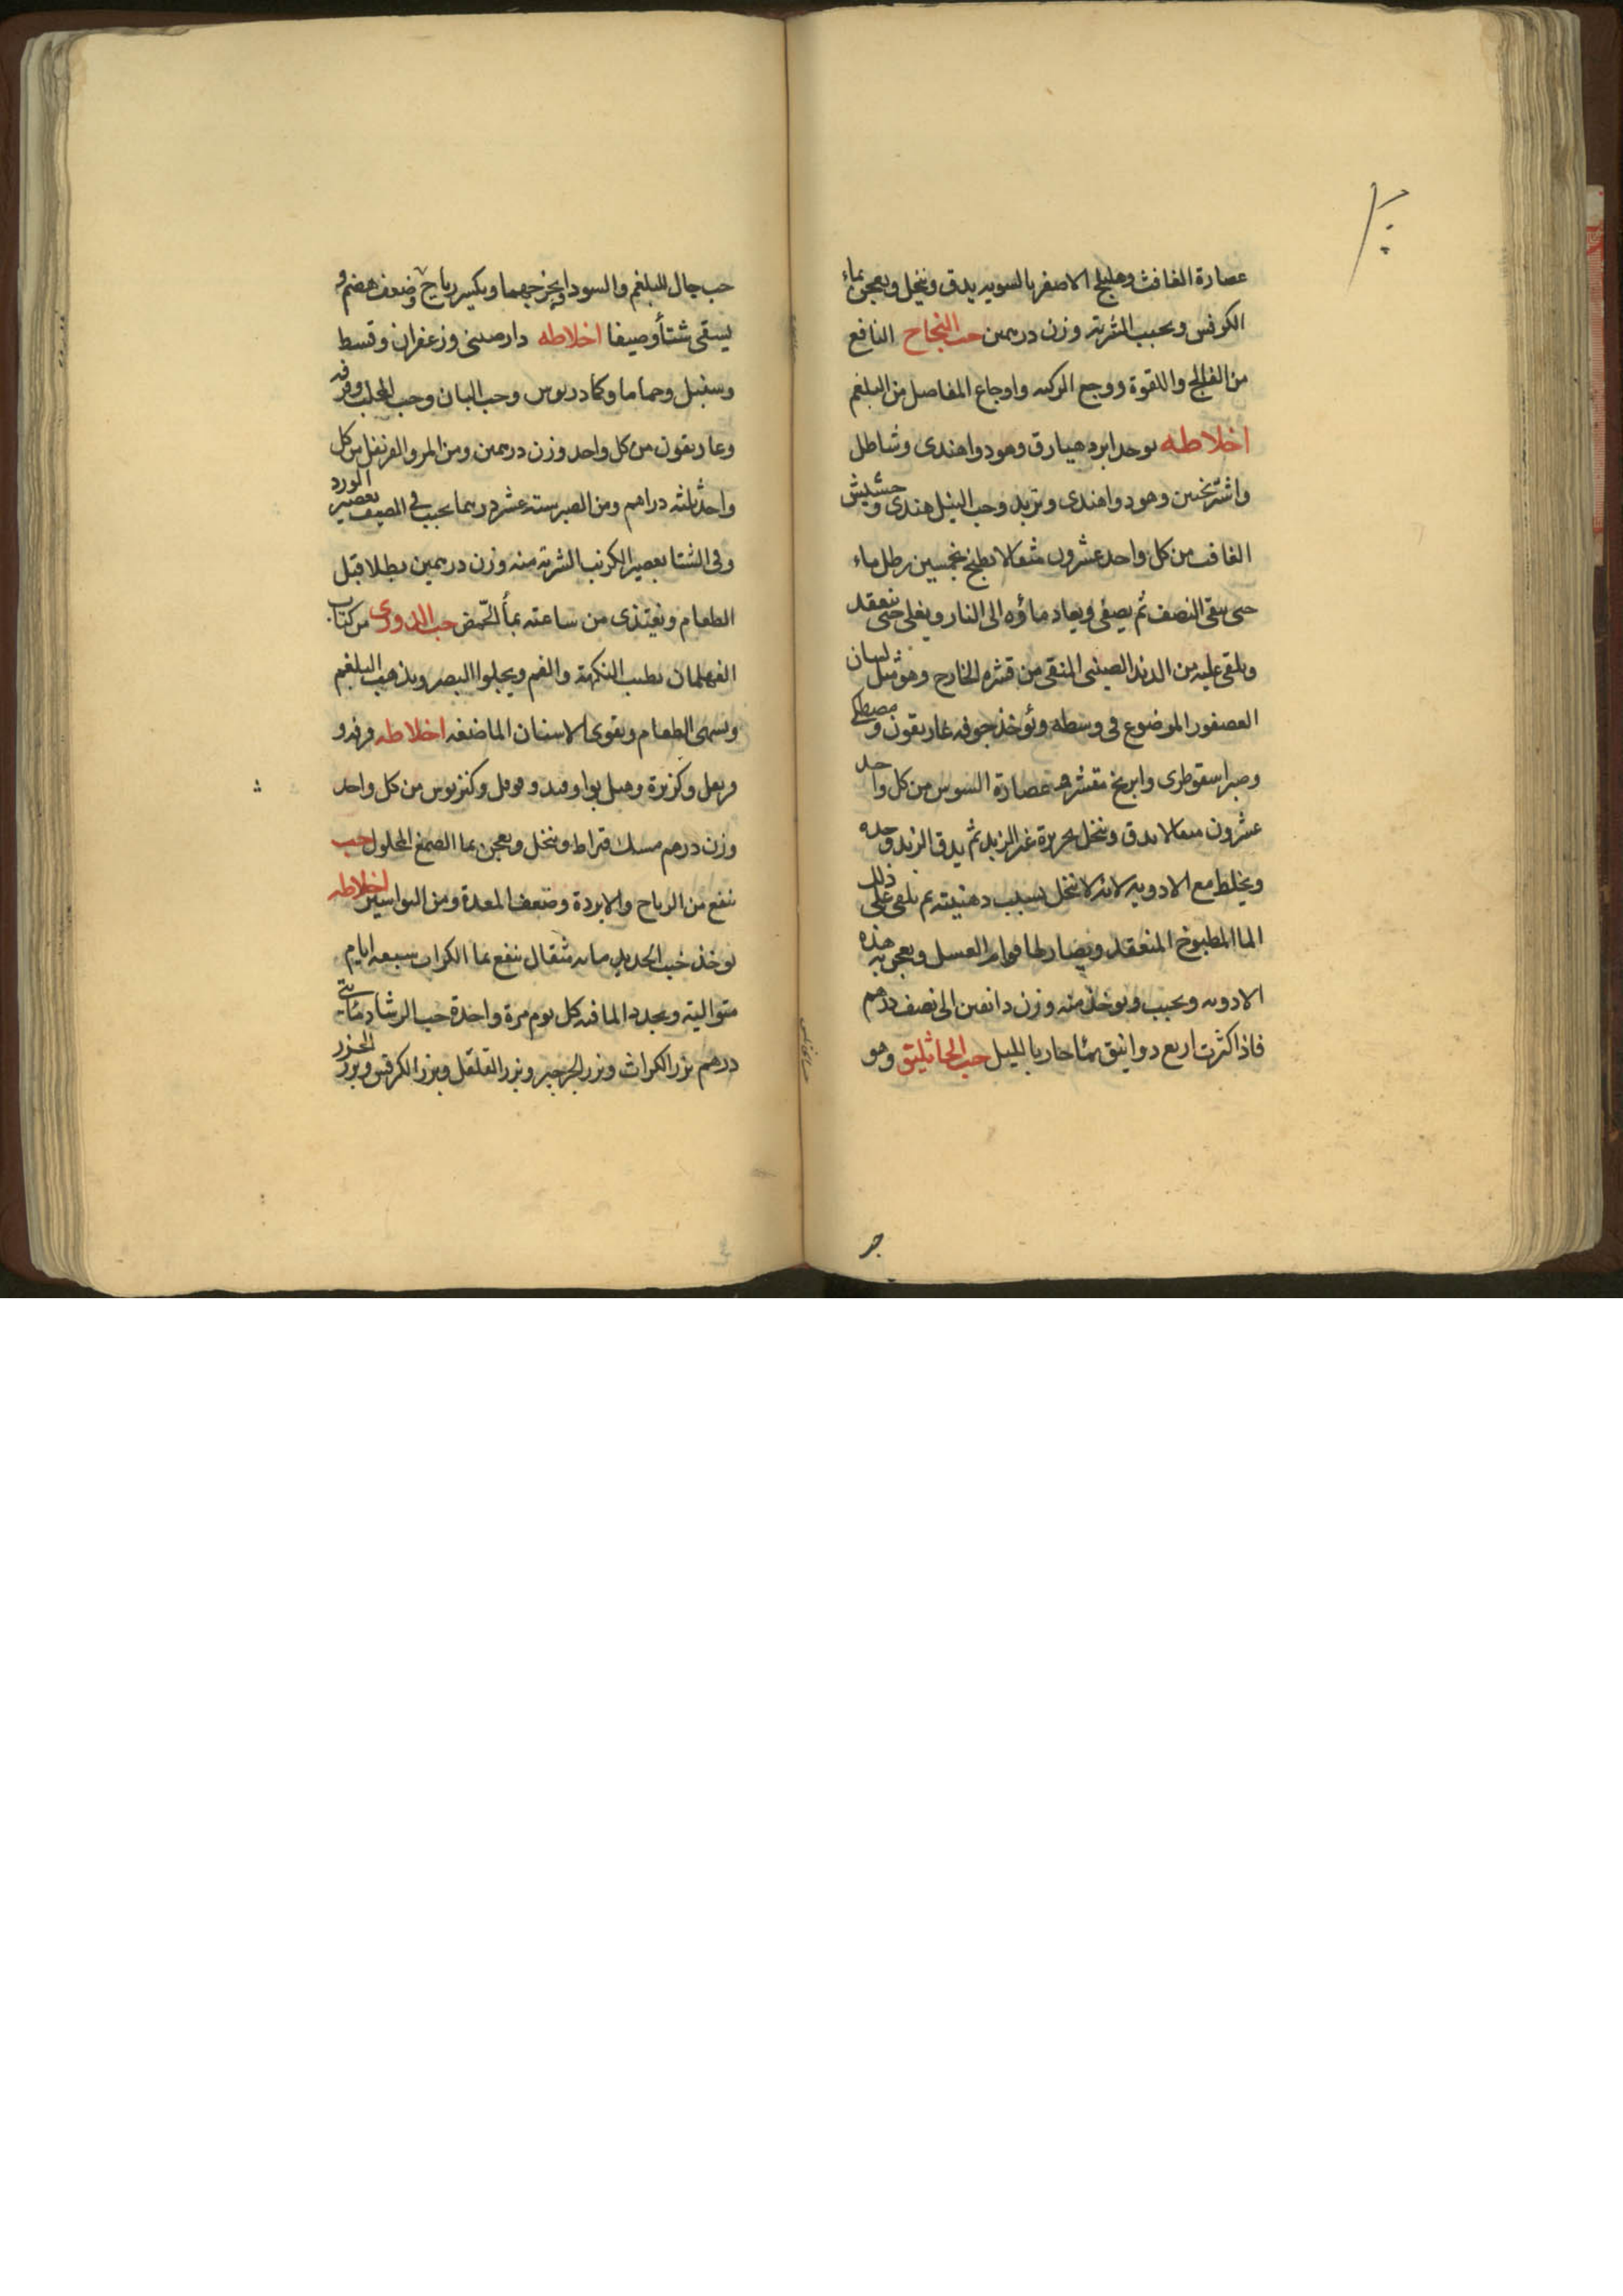 عصارة الغافث وهليلج الاصفر بالسويه يدق وينخل ويعجن بماء
الكرفس ويحبب الشربة وزن درهمين حب النجاح النافع
من الفالج واللقوة ووجع الركبه واوجاع المفاصل من البلغم
اخلاطه يوخد ابرد هيارق وهو دواهندى وشاطل
واشترنخسن وهو دواهندى وتربد وحب النيل هندى وحشيش
الغافت من كل واحد عشرون مثقالا يطبخ بخمسين رطل ماء
حتى يبقى النصف ثم يصفى ويعاد ماؤه الى النار ويغلى حتى ينعقد
ويلقى عليه من الدند الصينى المنقى من قشره الخارج وهو مثل لسان
العصفور الموضوع فى وسطه ويؤخذ جوفه غاريقون ومصطكى
وصبر اسقوطرى وابرنج مقشر عصارة السوس من كل واحد
عشرون مثقالا يدق وينخل بحريرة غير الزبد ثم يدق الزبد وحده
ويخلط مع الادويه لانه لا ينخل بسبب دهنيته ثم يلقى على ذلك
الما المطبوخ المنعقد ويصار لها قوام العسل ويعجن به هذه
الادويه ويحبب ويوخذ منه وزن دانقين الى نصف درهم
فاذا كثرت اربع دوانيق بما حار بالليل حب الجاثليق وهو
حب جال للبلغم والسودا ويخرجهما ويكسر رياح وضعف هضم و
يسقى شتأ وصيفا اخلاطه دارصينى وزعفران وقسط
وسنبل وحماما وكمادريوس وحب البان وحب المحلب وقرفه
وغاريقون من كل واحد وزن درهمين ومن المر والقرنفل من كل
واحد ثلثه دراهم ومن الصبر سته عشر درهما يحبب فى الصيف بعصير الورد
وفى الشتا بعصير الكرنب الشربة منه وزن درهمين بطلا قبل
الطعام ويغتذى من ساعته بمأ الحمض حب الذوى من كتاب
الفهلمان يطيب النكهة والفم ويجلوا البصر ويذهب البلغم
ويشهى الطعام ويقوى الاسنان الماضغه اخلاطه قرفه و
قرنفل وكزبرة وهيل بوا وفوفل وكنزبوس من كل واحد
وزن درهم مسك قيراط وينخل ويعجن بما الصمغ المحلول حب
ينفع من الرياح والابردة وضعف المعدة ومن البواسير اخلاطه
يوخذ خبث الحديد مايه مثقال ينقع بما الكراث سبعه ايام
متواليه ويجدد الما فيه كل يوم مرة واحدة حب الرشاد مأتى
درهم بزر الكراث وبزر الجرجير وبزر القلقل وبزر الكرفس وبزر الجزر